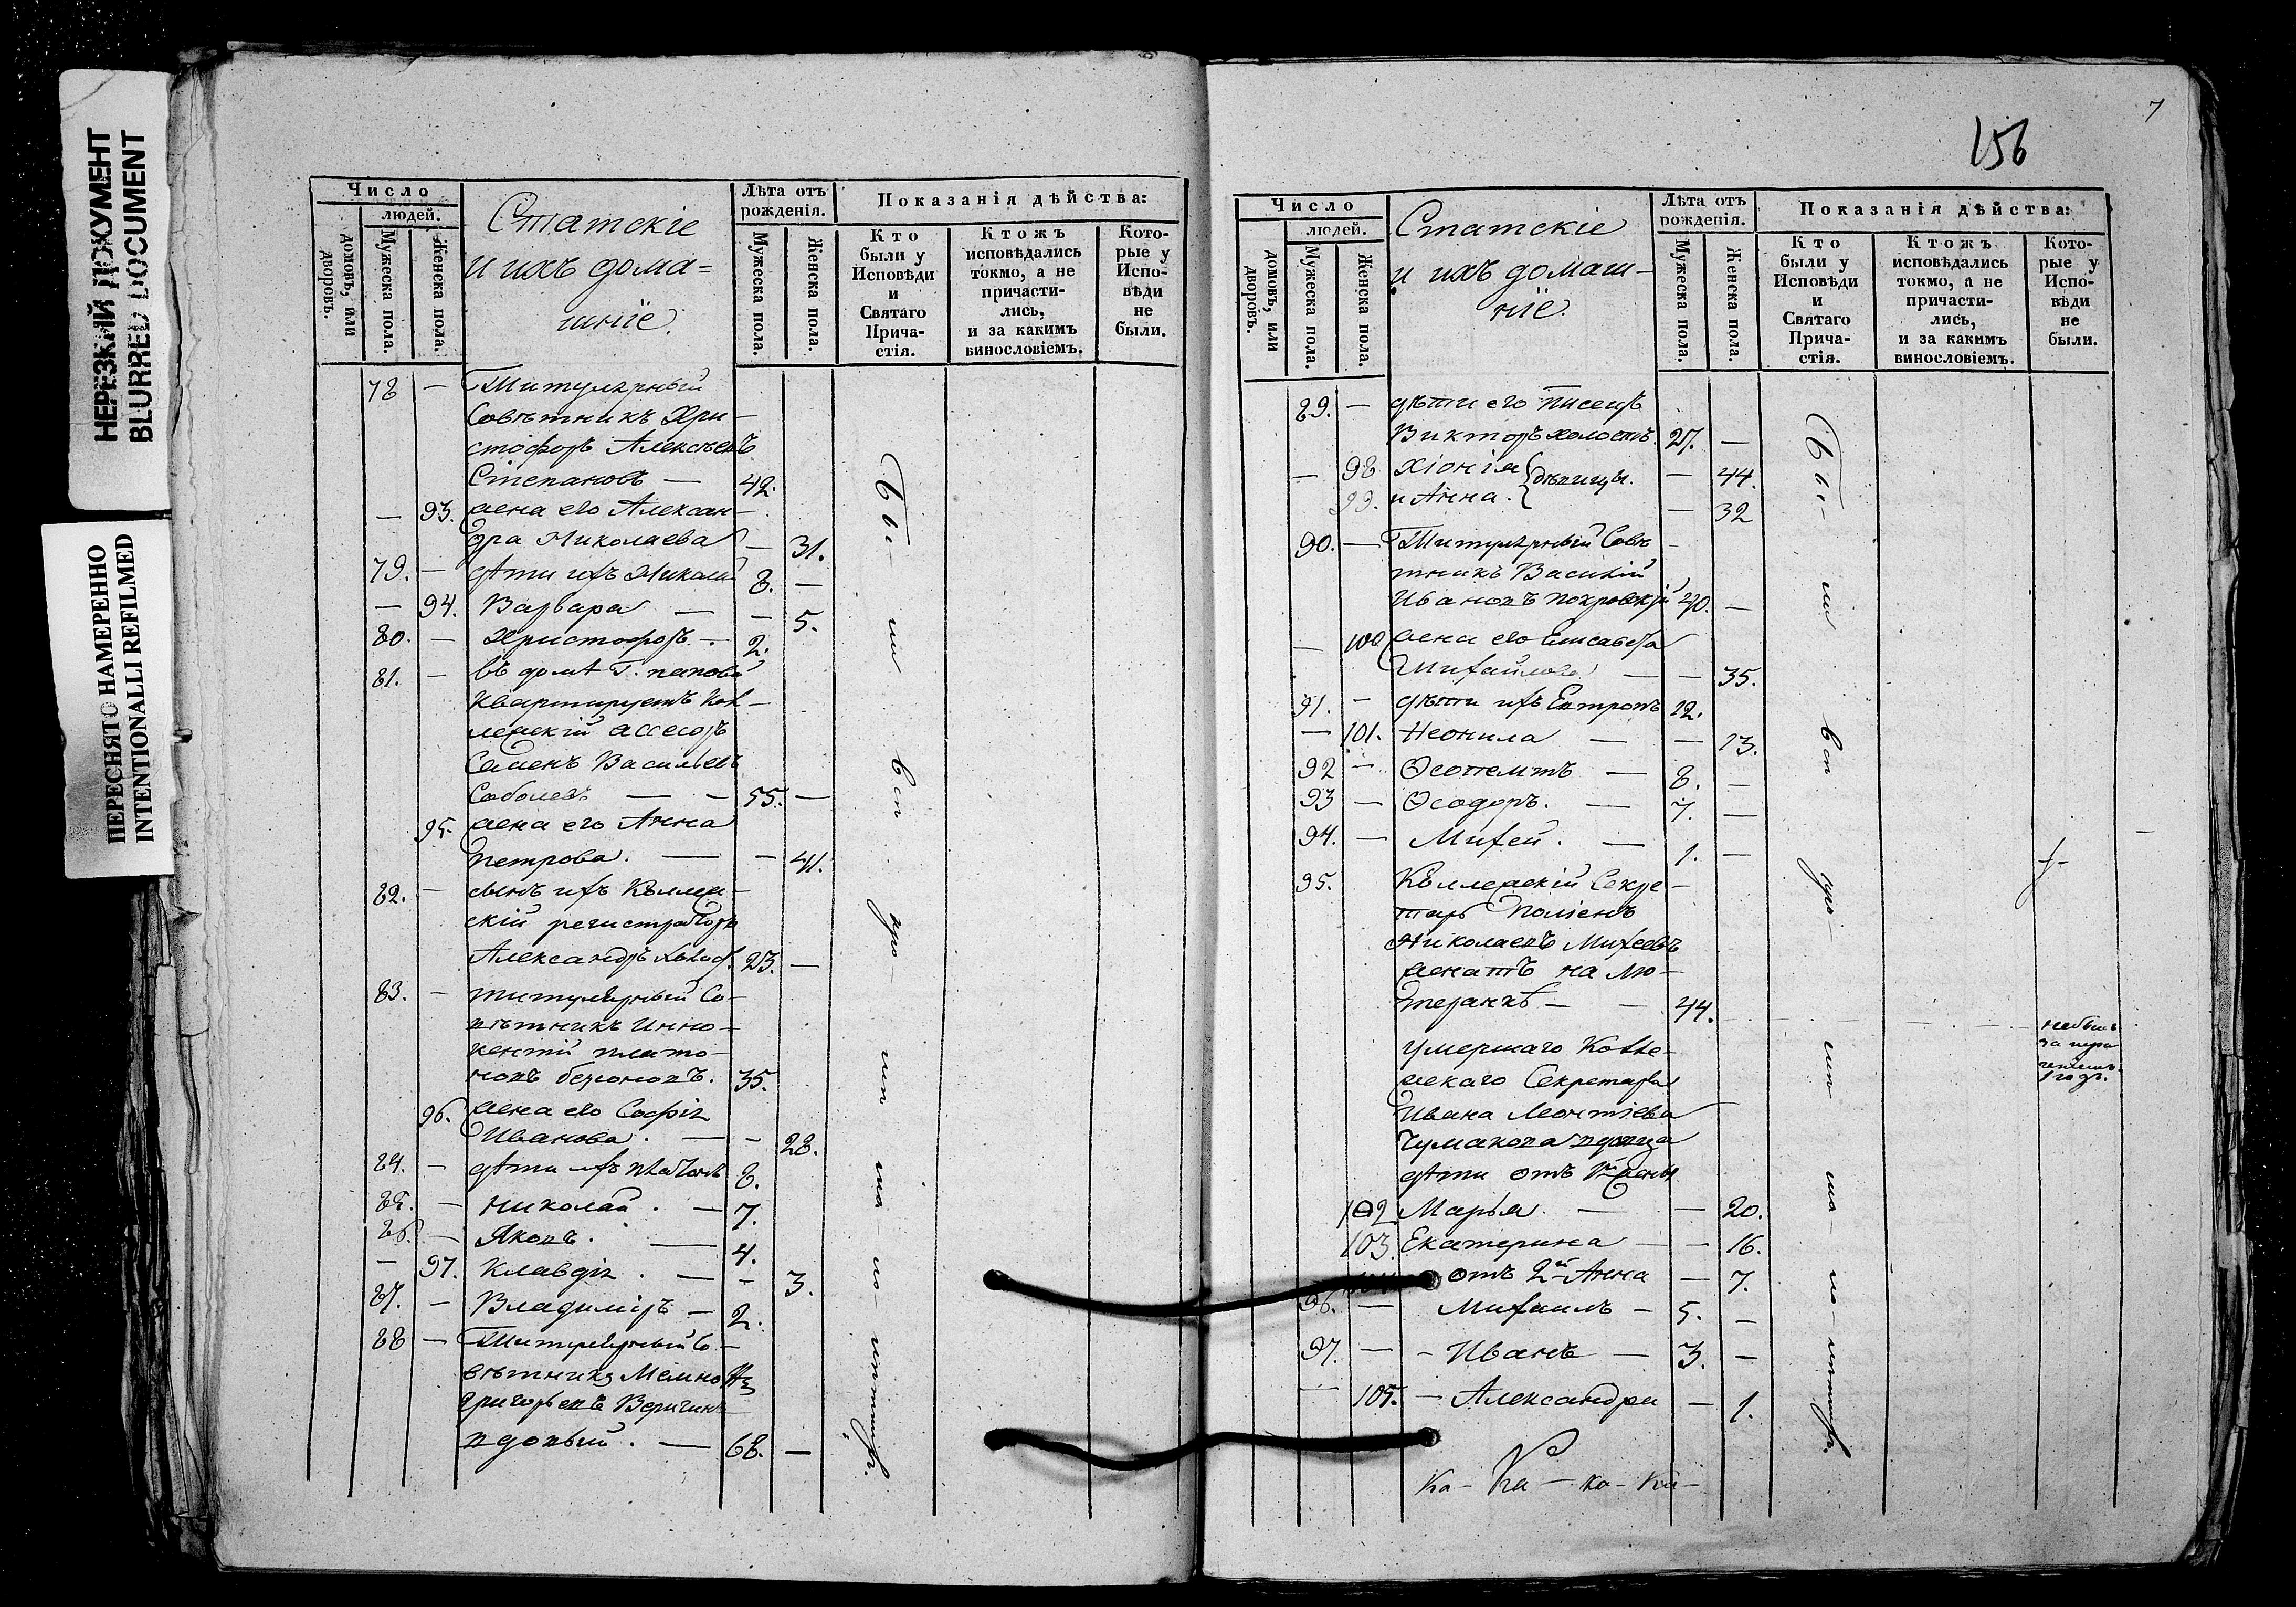 НЕРЕЗКИЙ ДОКУМЕНТ
BLURRED DOCUMENT
ПЕРЕСНЯТО НАМЕРЕННО
INTENTIONALLI REFILMED
Число
людей.
домовъ, или дворовъ.
Мужеска пола.
Женска пола.
Статскіе
и ихъ дома=
шніе.
Лѣта отъ
рожденія.
Мужеска пола.
Женска пола.
Показанія дѣйства:
Кто
были у
Исповѣди
и
Святаго
Прича-
стія.
Ктожъ
исповѣдались
токмо, а не
причасти-
лись,
и за какимъ
винословіемъ.
Кото-
рые у
Испо-
вѣди
не
были.
78 — Титулярный
Совѣтникъ Хри-
стофоръ Алексѣевъ
Степановъ — 42.
— 93. жена его Алексан-
дра Николаева — 31.
79. — дѣти ихъ Николай 8. —
— 94. Варвара — — 5.
80. — Христофоръ. — 2.
81. — въ домѣ Г. попова
квартируетъ Кол-
лежскій ассесоръ
Семенъ Васильевъ
Соболевъ — — 55. —
95. жена его Анна
петрова. — — 41.
82. — сынъ ихъ Коллеж-
скій регистраторъ
Александръ холост. 23. —
83. — титулярный Со-
вѣтникъ Инно-
кентій плато-
новъ 35.
96. жена его Софія
Иванова. — — 28.
84. — дѣти ихъ платонъ 8.
85. — николай. — 7.
86. — Яковъ. — 4.
— 97. Клавдія. — — 3.
87. — Владиміръ — 2.
88 — Титулярный Со-
вѣтникъ
Григорьевъ Веригинъ
вдовый. — 68. —
Бы-
ли
вси
при-
ча-
7
156
Число
людей.
домовъ, или дворовъ.
Мужеска пола.
Женска пола.
Статскіе
и ихъ домаш-
ніе.
Лѣта отъ
рожденія.
Мужеска пола.
Женска пола.
Показанія дѣйства:
Кто
были у
Исповѣди
и
Святаго
Прича-
стія.
Ктожъ
исповѣдались
токмо, а не
причасти-
лись,
и за какимъ
винословіемъ.
Кото-
рые у
Испо-
вѣди
не
были.
89. — дѣти его писецъ
Викторъ холостъ. 27. —
— 98 Хіонія — 44.
99. и Анна. дѣвицы. — 32
90. — Титулярный Совѣ-
тникъ Василій
Ивановъ покровскій 40. —
— 100 жена его Елисавета
Михайлова — — 35.
91. — дѣти ихъ Евтропъ 12.
— 101. Неонила — — 13.
92 — Ѳеопемтъ — 8. —
93 — Ѳеодоръ. — 7. —
94. — Михей. — 1. —
95. Коллежскій Секре-
тарь
Николаевъ Михеевъ
женатъ на лю-
теранкѣ — — 44.
умершаго Колле-
жскаго Секретаря
Ивана Леонтіева
Чумакова вдовца
дѣти отъ 1й жены
102 Марья. — — 20.
103. Екатерина — — 16.
104 отъ 2й Анна — 7.
96. — Михаилъ — 5. —
97. — — Иванъ — 3. —
— 105. — Александра — 1.
Ка- Ка- ка- ка-